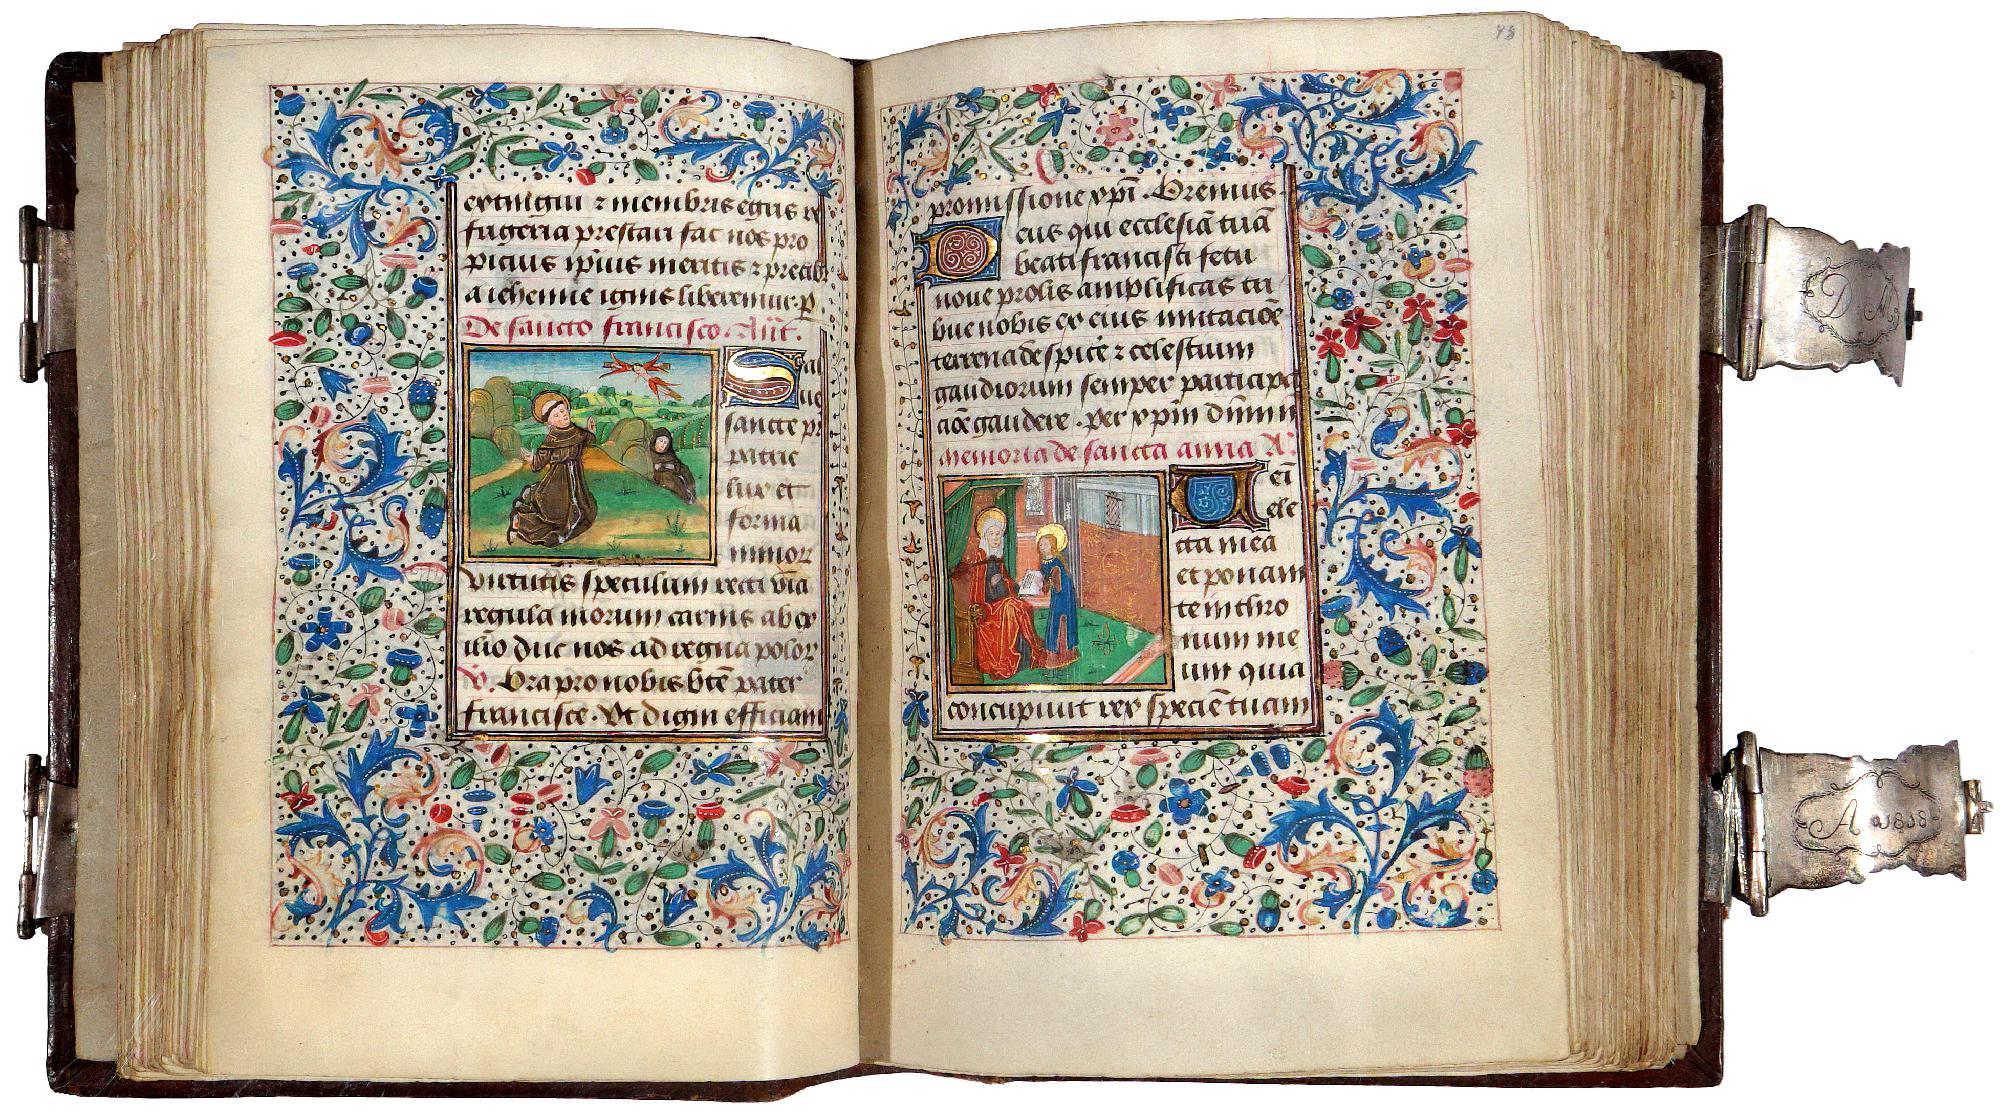 extingui ⁊ membris egris re
frigeria prestari fac nos pro
picius ip̄ius meritis ⁊ precib⁹
a iehenne ignis liberemur. p̄
De sancto francisco. Ant̄.
Sal
ue
sancte pr
patrie
lux et
forma
minorꝝ
virtutis speculum recti via
regula morum carnis ab ex
ilio duc nos ad regna polorꝝ
V. Ora pro nobis bt̄e pater
francisce. Vt digni efficiam
43
promissione xp̄i. Oremus.
Deus qui ecclesiā tuā
beati francisci fetu
noue prolis amplificas tri
bue nobis ex eius imitacioē
terrena despicē ⁊ celestium
gaudiorum semper participa
cioē gaudere. per xp̄m dn̄m
Memoria de sancta anna A.
Uei
ele
cta mea
et ponam
te in thro
num me
um quia
concupiuit rex speciē tuam
D. M
A